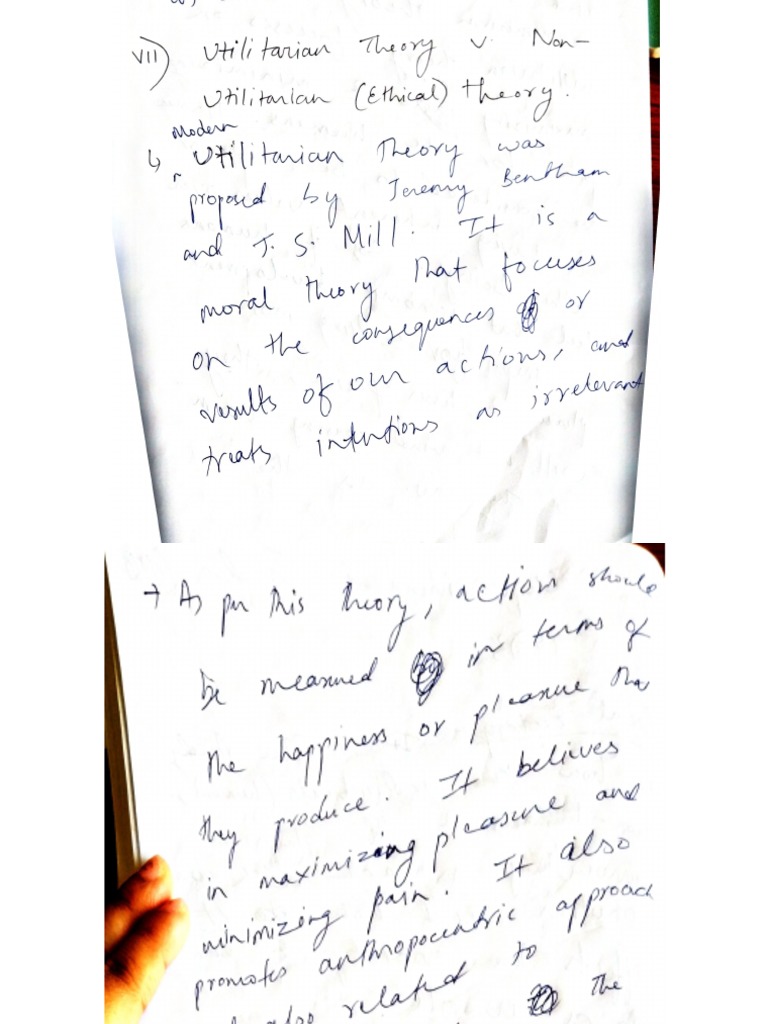 VII) Utilitarian Theory v. Non-
Utilitarian (Ethical) theory.
Modern
↳ Utilitarian Theory was
proposed by Jeremy Bentham
and J. S. Mill. It is a
moral theory that focuses
on the consequences or
results of our actions, and
treats intentions as irrelevant
→ As per this theory, action should
be measured in terms of
the happiness or pleasure tha
they produce. It believes
in maximizing pleasure and
minimizing pain. It also
promotes anthropocentric approach
also related to
The